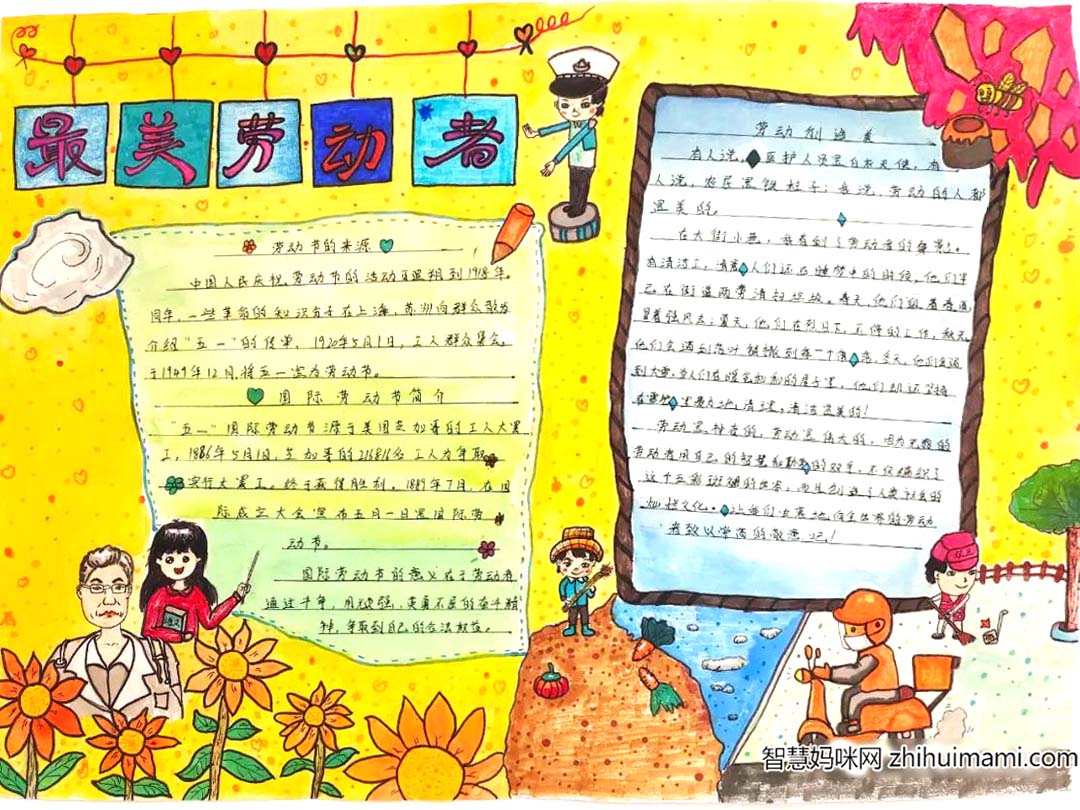 最美劳动者
劳动节的来源
中国人民庆祝劳动节的活动可追朔到1918年。
同年,一些革命的知识分子在上海,苏州向群众散发
介绍"五一"的传单,1920年5月1日,工人群众集会,
于1949年12月,将五一定为劳动节。
国际劳动节简介
"五一"国际劳动节源于美国芝加哥的工人大罢
工,1886年5月1日,芝加哥的216816名工人为争取
实行大罢工。终于获得胜利。1889年7月,在国
际成立大会宣布五月一日是国际劳
动节。
国际劳动节的意义在于劳动者
通过斗争,用顽强,英勇不屈的奋斗精
神,争取到自己的合法权益。
语文
劳动创造美
有人说,医护人员是白衣天使,有
人说,农民是铁柱子;我说,劳动的人都
是美的。
在大街小巷,我看到了劳动者的身影。
有清洁工,清晨人们还在睡梦中的时候,他们早
已在街道两旁清扫垃圾。春天,他们
冒着强风去;夏天,他们在烈日下,不停的工作,秋天
他们会遇到落叶飘散到每一个角落,冬天,他们会遇
到大雪,当人们在暖和的房子里,他们却还坚持
在雪地里费力地清理,清洁是美的!
劳动是神奇的,劳动是伟大的,因为无数的
劳动者用自己的智慧和勤劳的双手,不仅编织了
这个五彩斑斓的世界,而且创造了人类社会的
灿烂文化。让我们由衷地向全世界的劳动
者致以崇高的敬意吧!
智慧妈咪网 zhihuimami.com